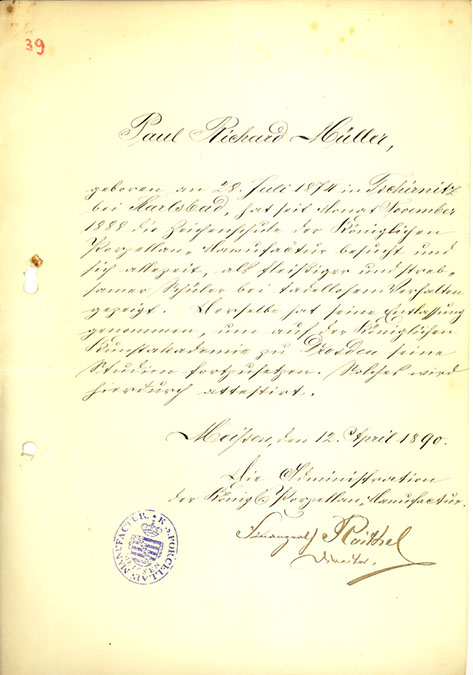 39
Paul Richard Müller,
geboren an 28. Juli 1874 in Tschirnitz
bei Karlsbad, hat seit Monat November
1888 die Zeichenschule der Königlichen
Porzellan-Manufactur besucht und
sich allezeit, als fleißiger und streb-
samer Schüler bei tadellosem Verhalten
gezeigt. Derselbe hat seine Entlassung
genommen, um auf der Königlichen
Kunstakademie zu Dresden seine
Studien fortzusetzen. Solches wird
hierdurch attestirt.
Meißen, den 12. April 1890.
Die Administration
der Königl. Porzellan-Manufactur.
Raithel
Director.
K. S. PORCELLAIN MANUFACTUR